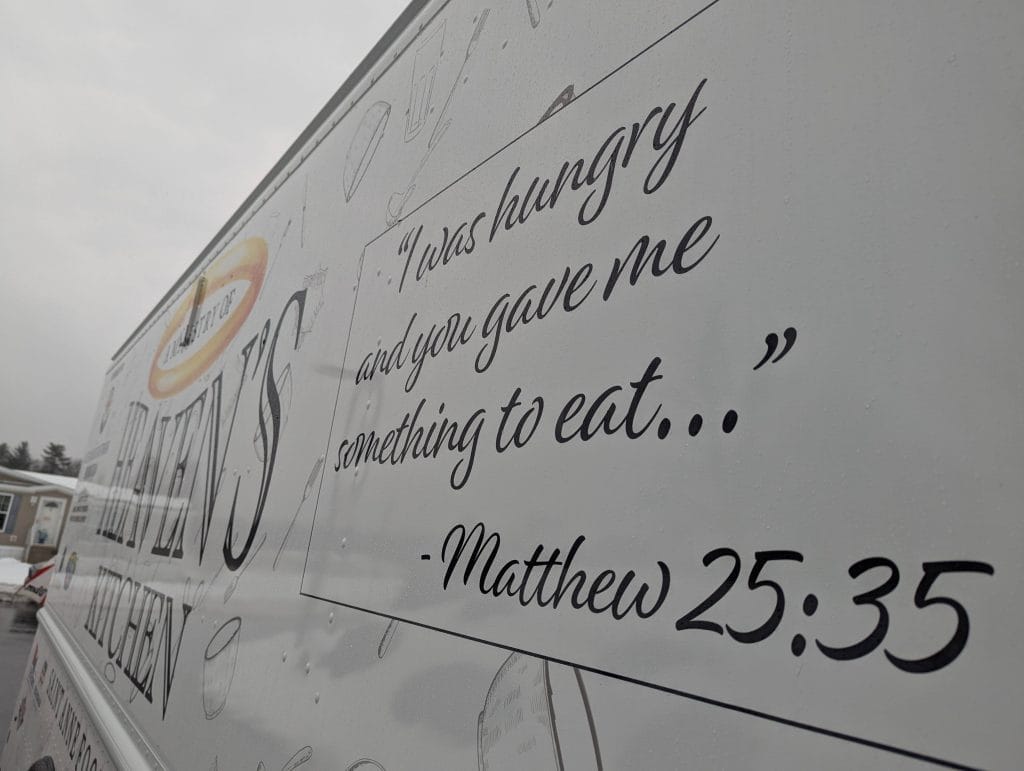 A MINISTRY OF
HEAVEN'S
KITCHEN
“I was hungry
and you gave me
something to eat...”
-Matthew 25:35